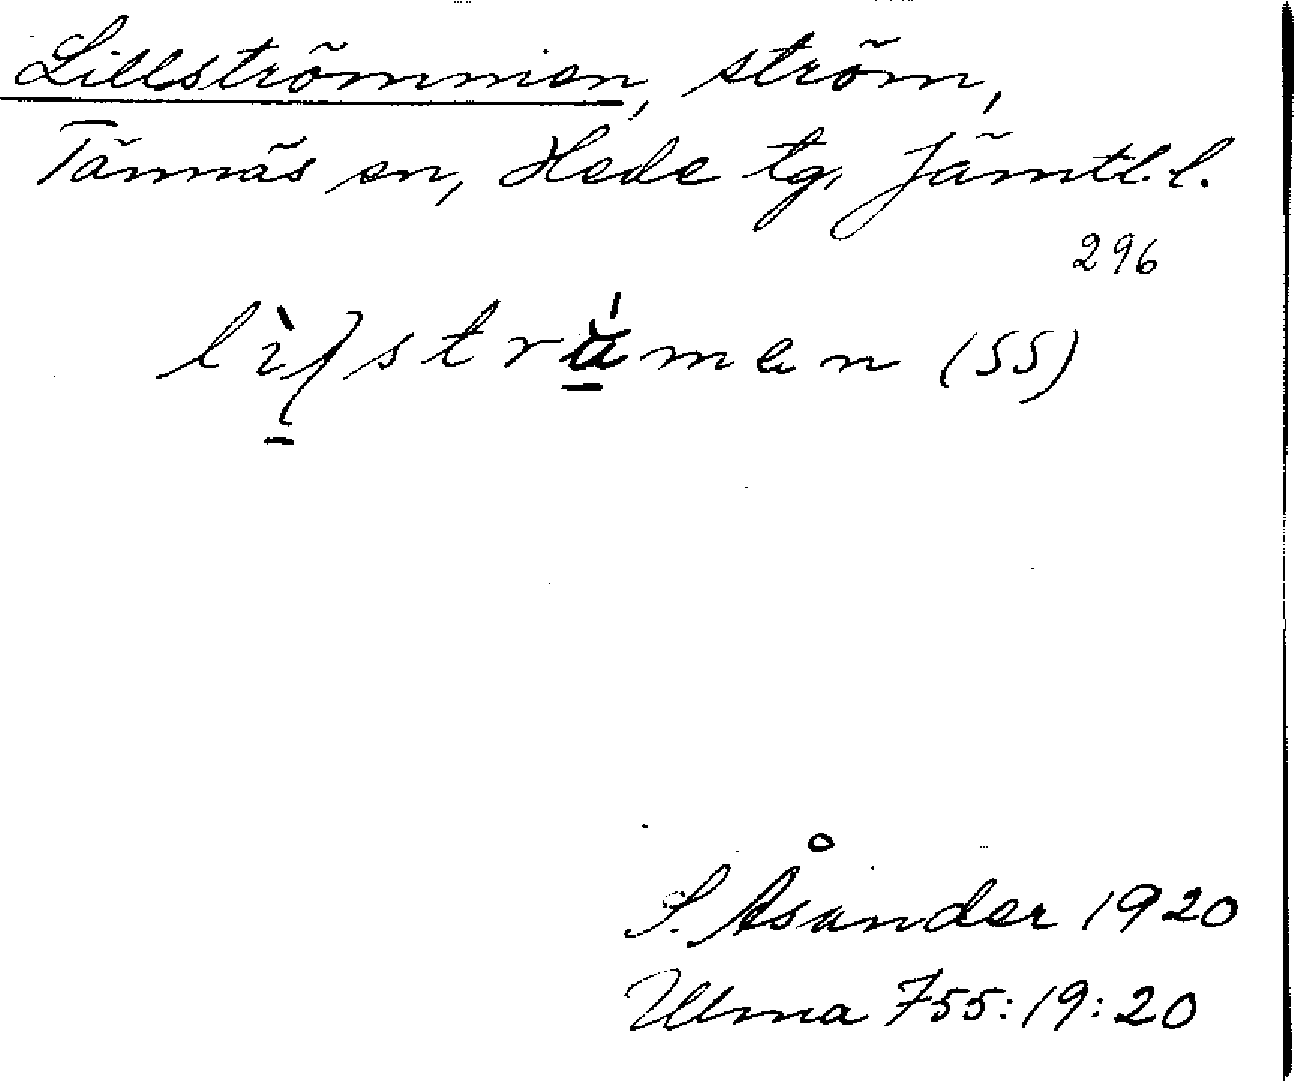 Lillströmmen, ström,
Tännäs sn, Hede tg, Jämtl. l.
296
(55)
S. Åsander 1920
Ulma 755:19:20